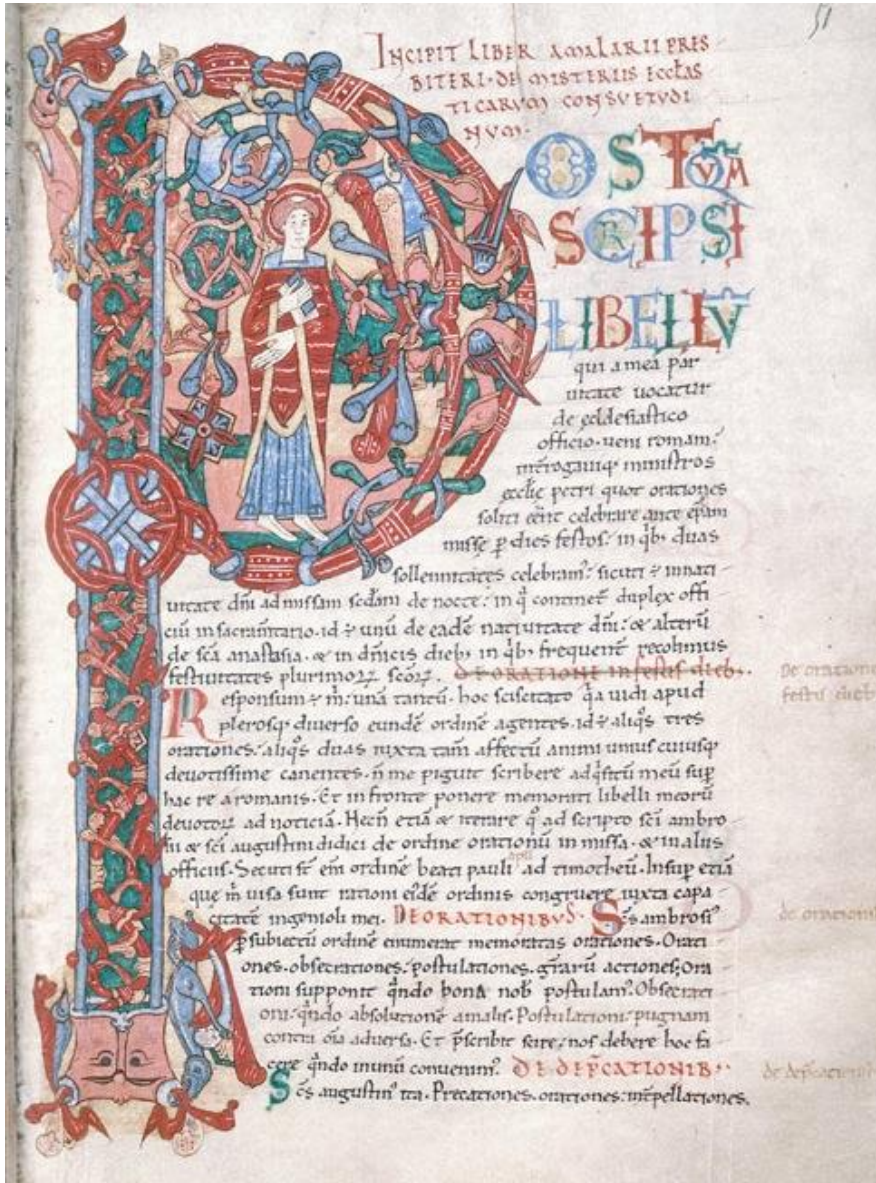 51
INCIPIT LIBER AMALARII PRES
BITERI·DE MISTERIIS ECCLAS
TICARVM CONSVETVDI
NVM·
POSTQVAM
SCRIPSI
LIBELLV̄
qui a mea par
uitate uocatur
de ecclesiastico
officio·ueni romam·
int̄rogauiq; ministros
eccl̄ie petri quot orationes
soliti eēnt celebrare ante ep̄am
misse p̄ dies festos· in qb; duas
sollennitates celebram᷒· sicuti ÷ in nati
uitate dn̄i ad missam scd̄am de nocte· in q̄ continet᷒ duplex offi
ciū in sacram̄tario·id ÷ unū de eadē natiuitate dn̄i· & alterū
de scā anastasia·& in dn̄icis dieb; in qb; frequent̄ recolimus
festiuitates plurimoꝝ scōꝝ. DE ORATIONE in festis dieb;·
De oratione
festis dieb
Responsum ÷ m̄·unā tantū·hoc sciscitato q̄a uidi apud
plerosq; diuerso eundē ordinē agentes·id ÷ aliq̄s tres
orationes·aliq̄s duas iuxta tam̄ affectū animi unius cuiusq;
deuotissime canentes·n̄ me piguit scribere adq̄sitū meū sup̄
hac re a romanis·Et in fronte ponere memorati libelli meorū
deuotoꝝ ad noticiā·Hecn̄ etiā & iterare q̄ ad scripto sc̄i ambro
sii & sc̄i augustini didici de ordine orationū in missa·& in aliis
officiis·Secuti st̄ em̄ ordinē beati pauli apłi ad timotheū·Insup̄ etiā
que m̄ uisa sunt rationi eidē ordinis congruere iuxta capa
citatē ingenioli mei. DE ORATIONIBVS· Sc̄s ambrosi᷒
de oration
p̄subiectū ordinē enumerat memoratas orationes·Orati
ones·obsecrationes·postulationes·gr̄arū actiones;Ora
tioni supponit q̄ndo bona nob̄ postulam᷒·Obsecrati
oni·q̄ndo absolutionē a malis·Postulationi·pugnam
contra oīa aduersa·Et p̄scribit scire·nos debere hoc fa
cere q̄ndo in unū conuenim᷒. DE DEP̄CATIONIB;·
de dep̄cation
Sc̄s augustin᷒ ita·Precationes·orationes·int̄pellationes.